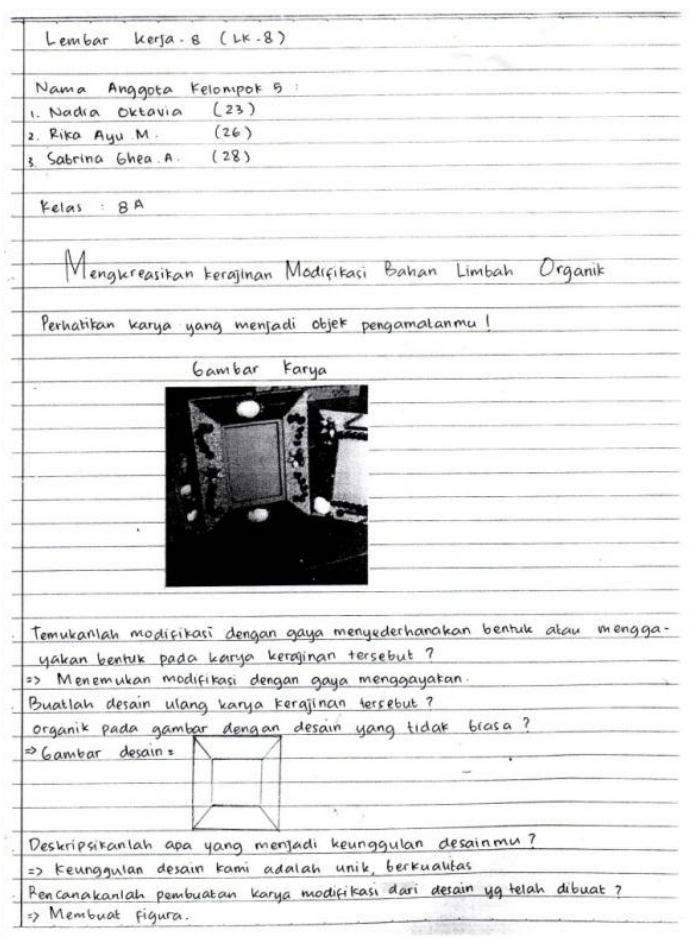 Lembar kerja. 8 (LK-8)
Nama Anggota Kelompok 5 :
1. Nadia Oktavia (23)
2. Rika Ayu M. (26)
3. Sabrina Ghea. A. (28)
Kelas : 8 A
Mengkreasikan kerajinan Modifikasi Bahan Limbah Organik
Perhatikan karya yang menjadi objek pengamatanmu !
Gambar Karya
Temukanlah modifikasi dengan gaya menyederhanakan bentuk atau mengga-
yakan bentuk pada karya kerajinan tersebut ?
=> Menemukan modifikasi dengan gaya menggayakan.
Buatlah desain ulang karya kerajinan tersebut ?
organik pada gambar dengan desain yang tidak biasa ?
=> Gambar desain =
Deskripsikanlah apa yang menjadi keunggulan desainmu ?
=> Keunggulan desain kami adalah unik, berkualitas
Rencanakanlah pembuatan karya modifikasi dari desain yg telah dibuat ?
=> Membuat figura.